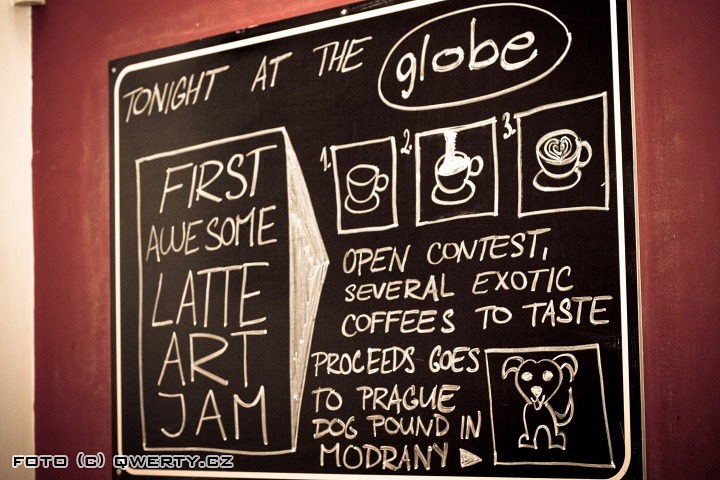 TONIGHT AT THE globe
FIRST
AWESOME
LATTE
ART
JAM
1.
2.
3.
OPEN CONTEST,
SEVERAL EXOTIC
COFFEES TO TASTE
PROCEEDS GOES
TO PRAGUE
DOG POUND IN
MODRANY
FOTO (C) QWERTY.CZ